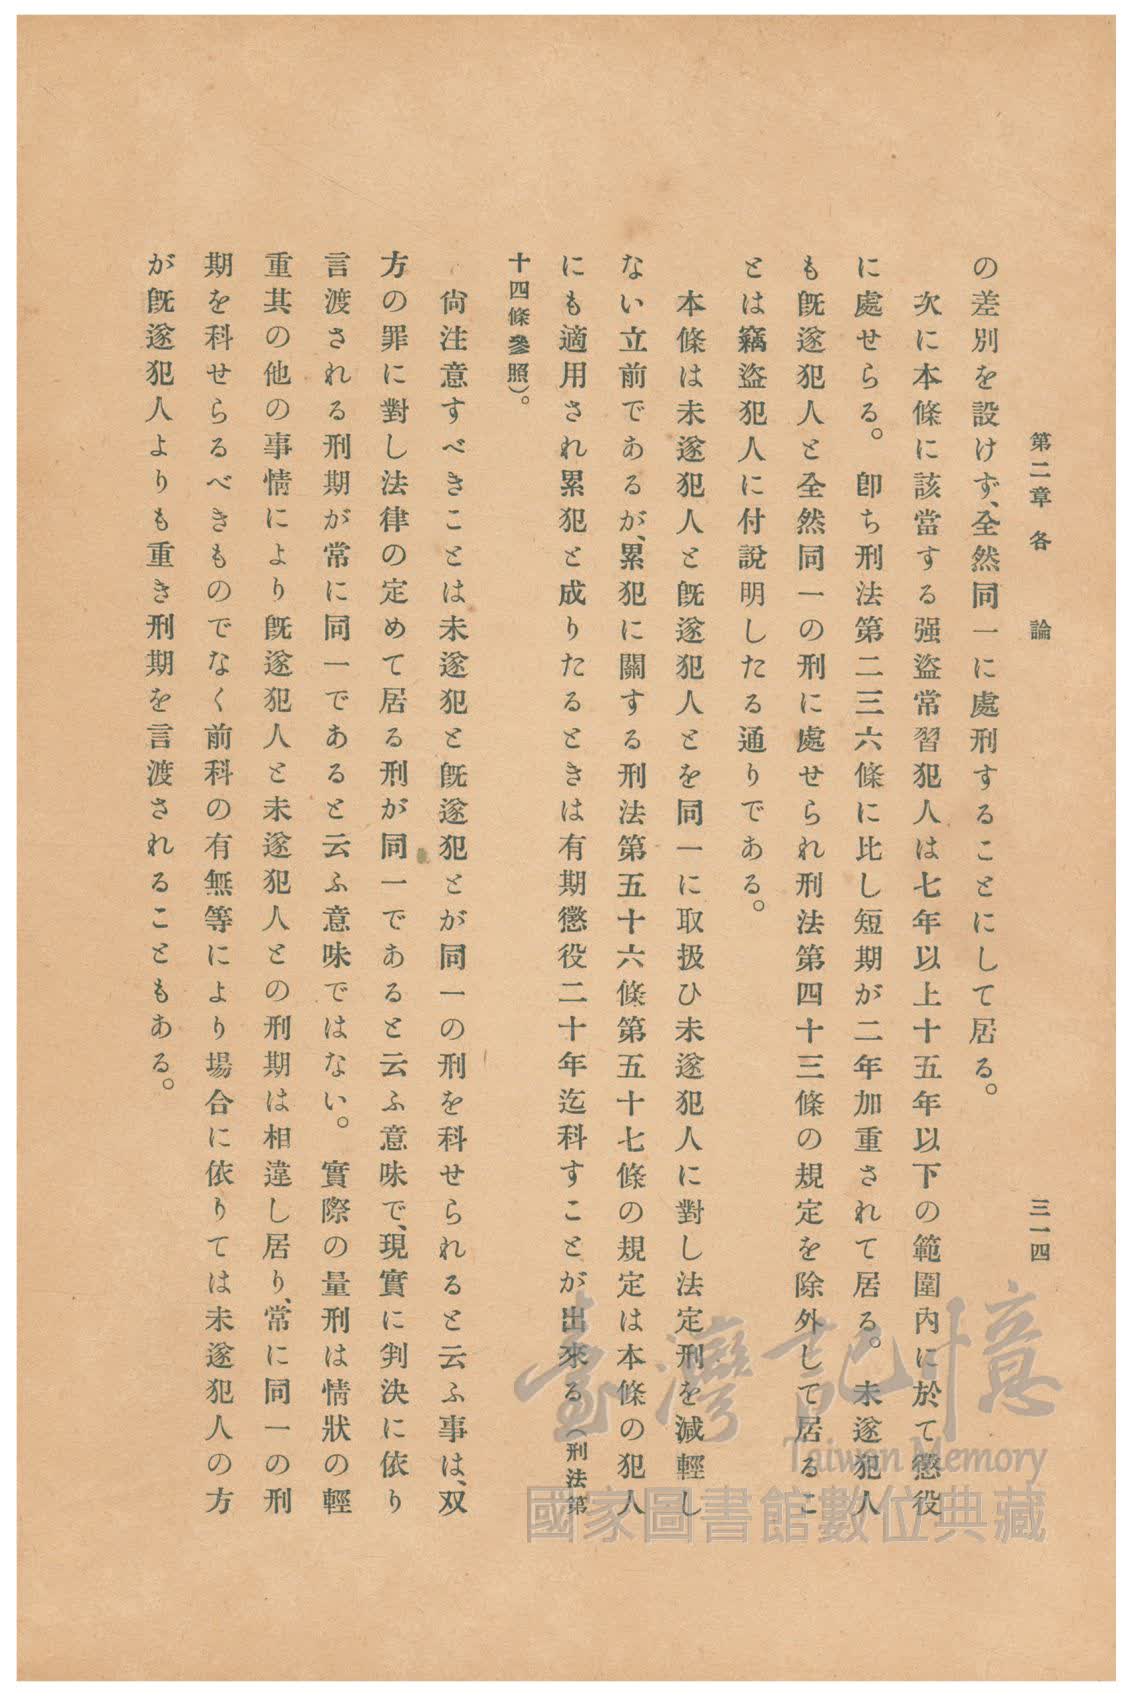 第二章 各論
三一四
の差別を設けず、全然同一に處刑することにして居る。
次に本條に該當する强盜常習犯人は七年以上十五年以下の範圍內に於て懲役
に處せらる。卽ち刑法第二三六條に比し短期が二年加重されて居る。未遂犯人
も旣遂犯人と全然同一の刑に處せられ刑法第四十三條の規定を除外して居るこ
とは竊盜犯人に付說明したる通りである。
本條は未遂犯人と旣遂犯人とを同一に取扱ひ未遂犯人に對し法定刑を減輕し
ない立前であるが、累犯に關する刑法第五十六條第五十七條の規定は本條の犯人
にも適用され累犯と成りたるときは有期懲役二十年迄科すことが出來る(刑法第
十四條參照)。
尙注意すべきことは未遂犯と旣遂犯とが同一の刑を科せられると云ふ事は、双
方の罪に對し法律の定めて居る刑が同一であると云ふ意味で、現實に判決に依り
言渡される刑期が常に同一であると云ふ意味ではない。實際の量刑は情狀の輕
重其の他の事情により旣遂犯人と未遂犯人との刑期は相違し居り、常に同一の刑
期を科せらるべきものでなく前科の有無等により場合に依りては未遂犯人の方
が旣遂犯人よりも重き刑期を言渡されることもある。
臺灣記憶
Taiwan Memory
國家圖書館數位典藏